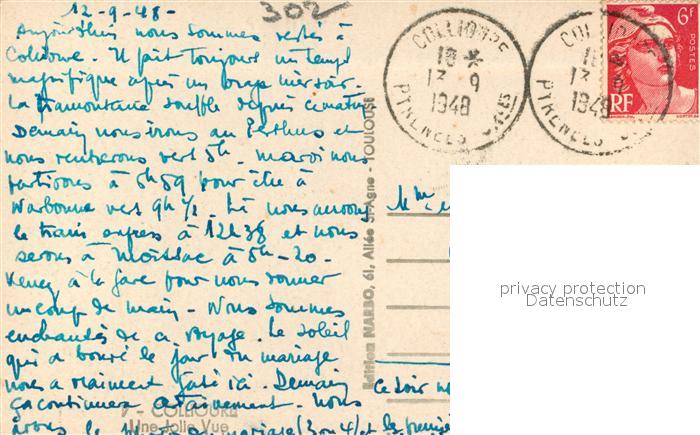 12-9-48-
302
Aujourd'hui nous sommes restés à
Collioure. Il fait toujours un temps
magnifique après un orage hier soir.
La tramontane souffle depuis ce matin
Demain nous irons au Perthus et
nous rentrerons vers 5h. mardi nous
partirons à 6h59 pour être à
Narbonne vers 9h 1/2. Là nous aurons
le train express à 12h38 et nous
serons à Moissac à 5h-20-
Venez à la gare pour nous donner
un coup de main - Nous sommes
enchantés de ce voyage. Le soleil
qui a boudé le jour du mariage
nous a vraiment gâté ici. Demain
ça continuera certainement. Nous
avons le
mariage (3 ou 4) et
ce soir
COLLIOURE
18 *
13 9
1948
PYRENEES
COLLIOURE
13
1948
PYRENEES
6F
POSTES
RF
Edition NARBO, 61, Allée St-Agne - TOULOUSE
Mme
privacy protection
Datenschutz
V - COLLIOURE
Une Jolie Vue